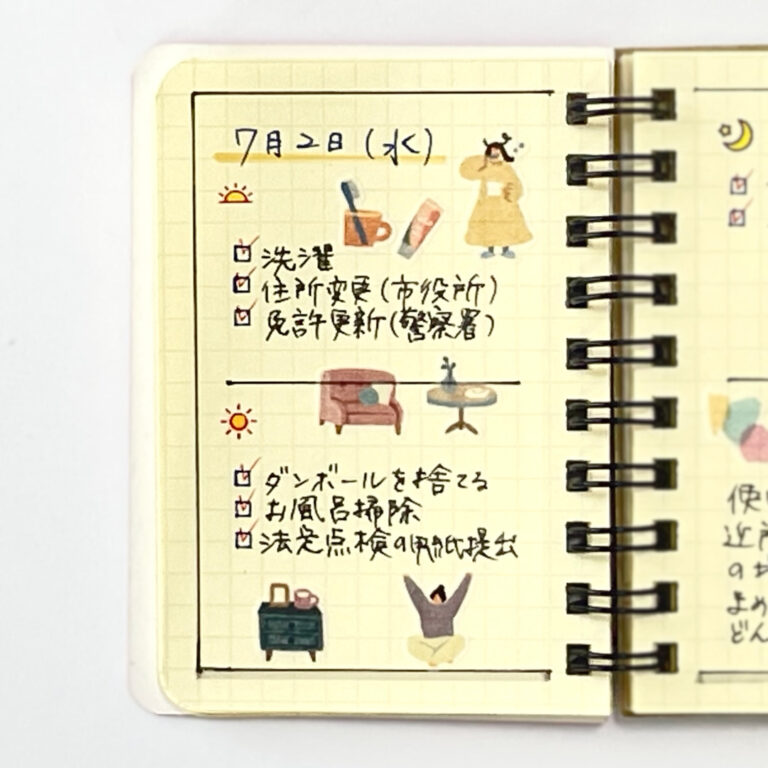 7月2日(水)
洗濯
住所変更(市役所)
免許更新(警察署)
ダンボールを捨てる
お風呂掃除
法定点検の用紙提出
便
近所
の
まめ
どん